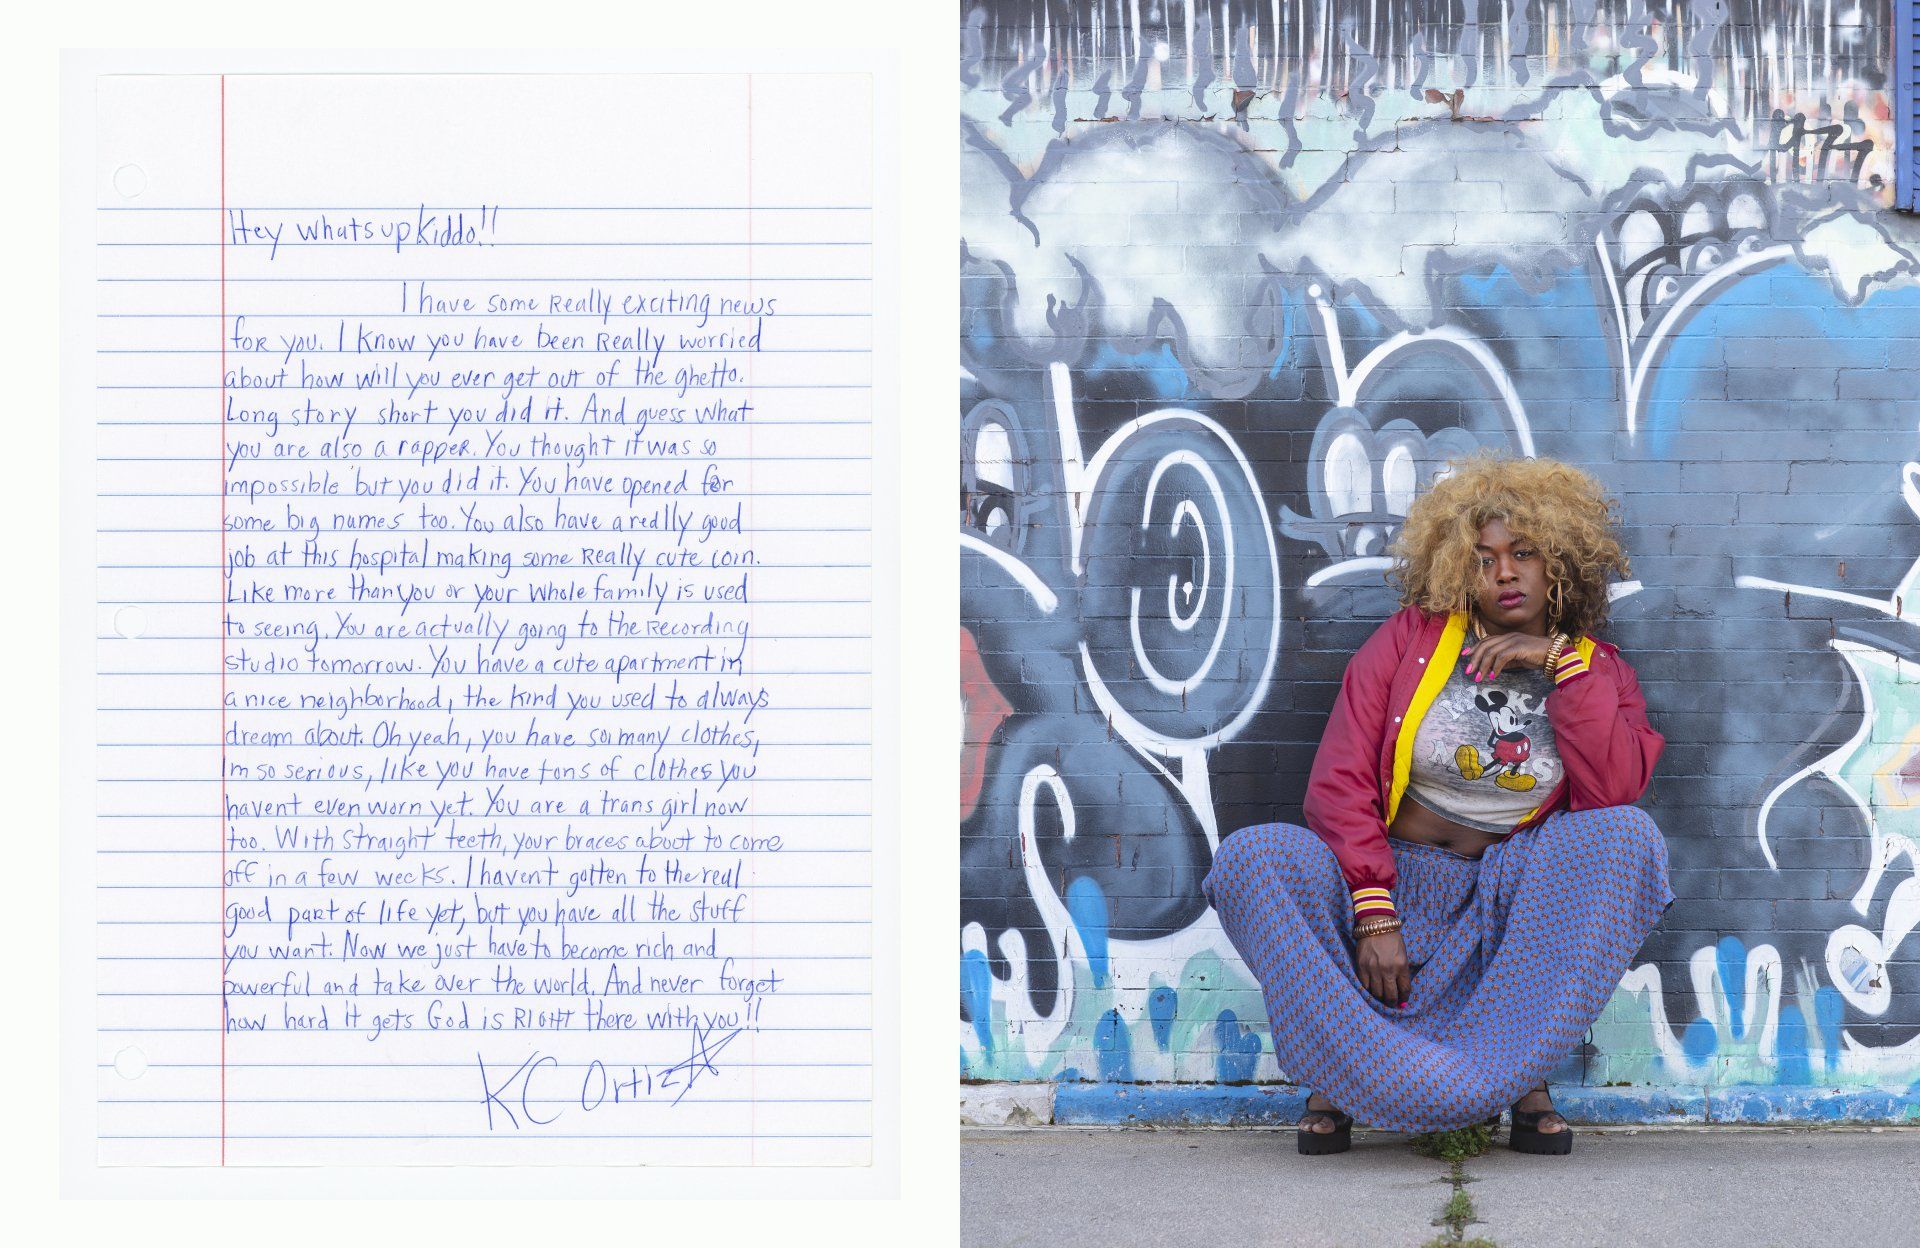 Hey whats up Kiddo!!
I have some Really exciting news
for you. I know you have been Really worried
about how will you ever get out of the ghetto.
Long story short you did it. And guess what
you are also a rapper. You thought it was so
impossible but you did it. You have opened for
some big names too. You also have a really good
job at this hospital making some Really cute coin.
Like more than you or your whole family is used
to seeing. You are actually going to the Recording
studio tomorrow. You have a cute apartment in
a nice neighborhood, the kind you used to always
dream about. Oh yeah, you have so many clothes,
Im so serious, like you have tons of clothes you
havent even worn yet. You are a trans girl now
too. With straight teeth, your braces about to come
off in a few weeks. I havent gotten to the real
good part of life yet, but you have all the stuff
you want. Now we just have to become rich and
powerful and take over the world. And never forget
how hard it gets God is RIGHT there with you!!
KC Ortiz